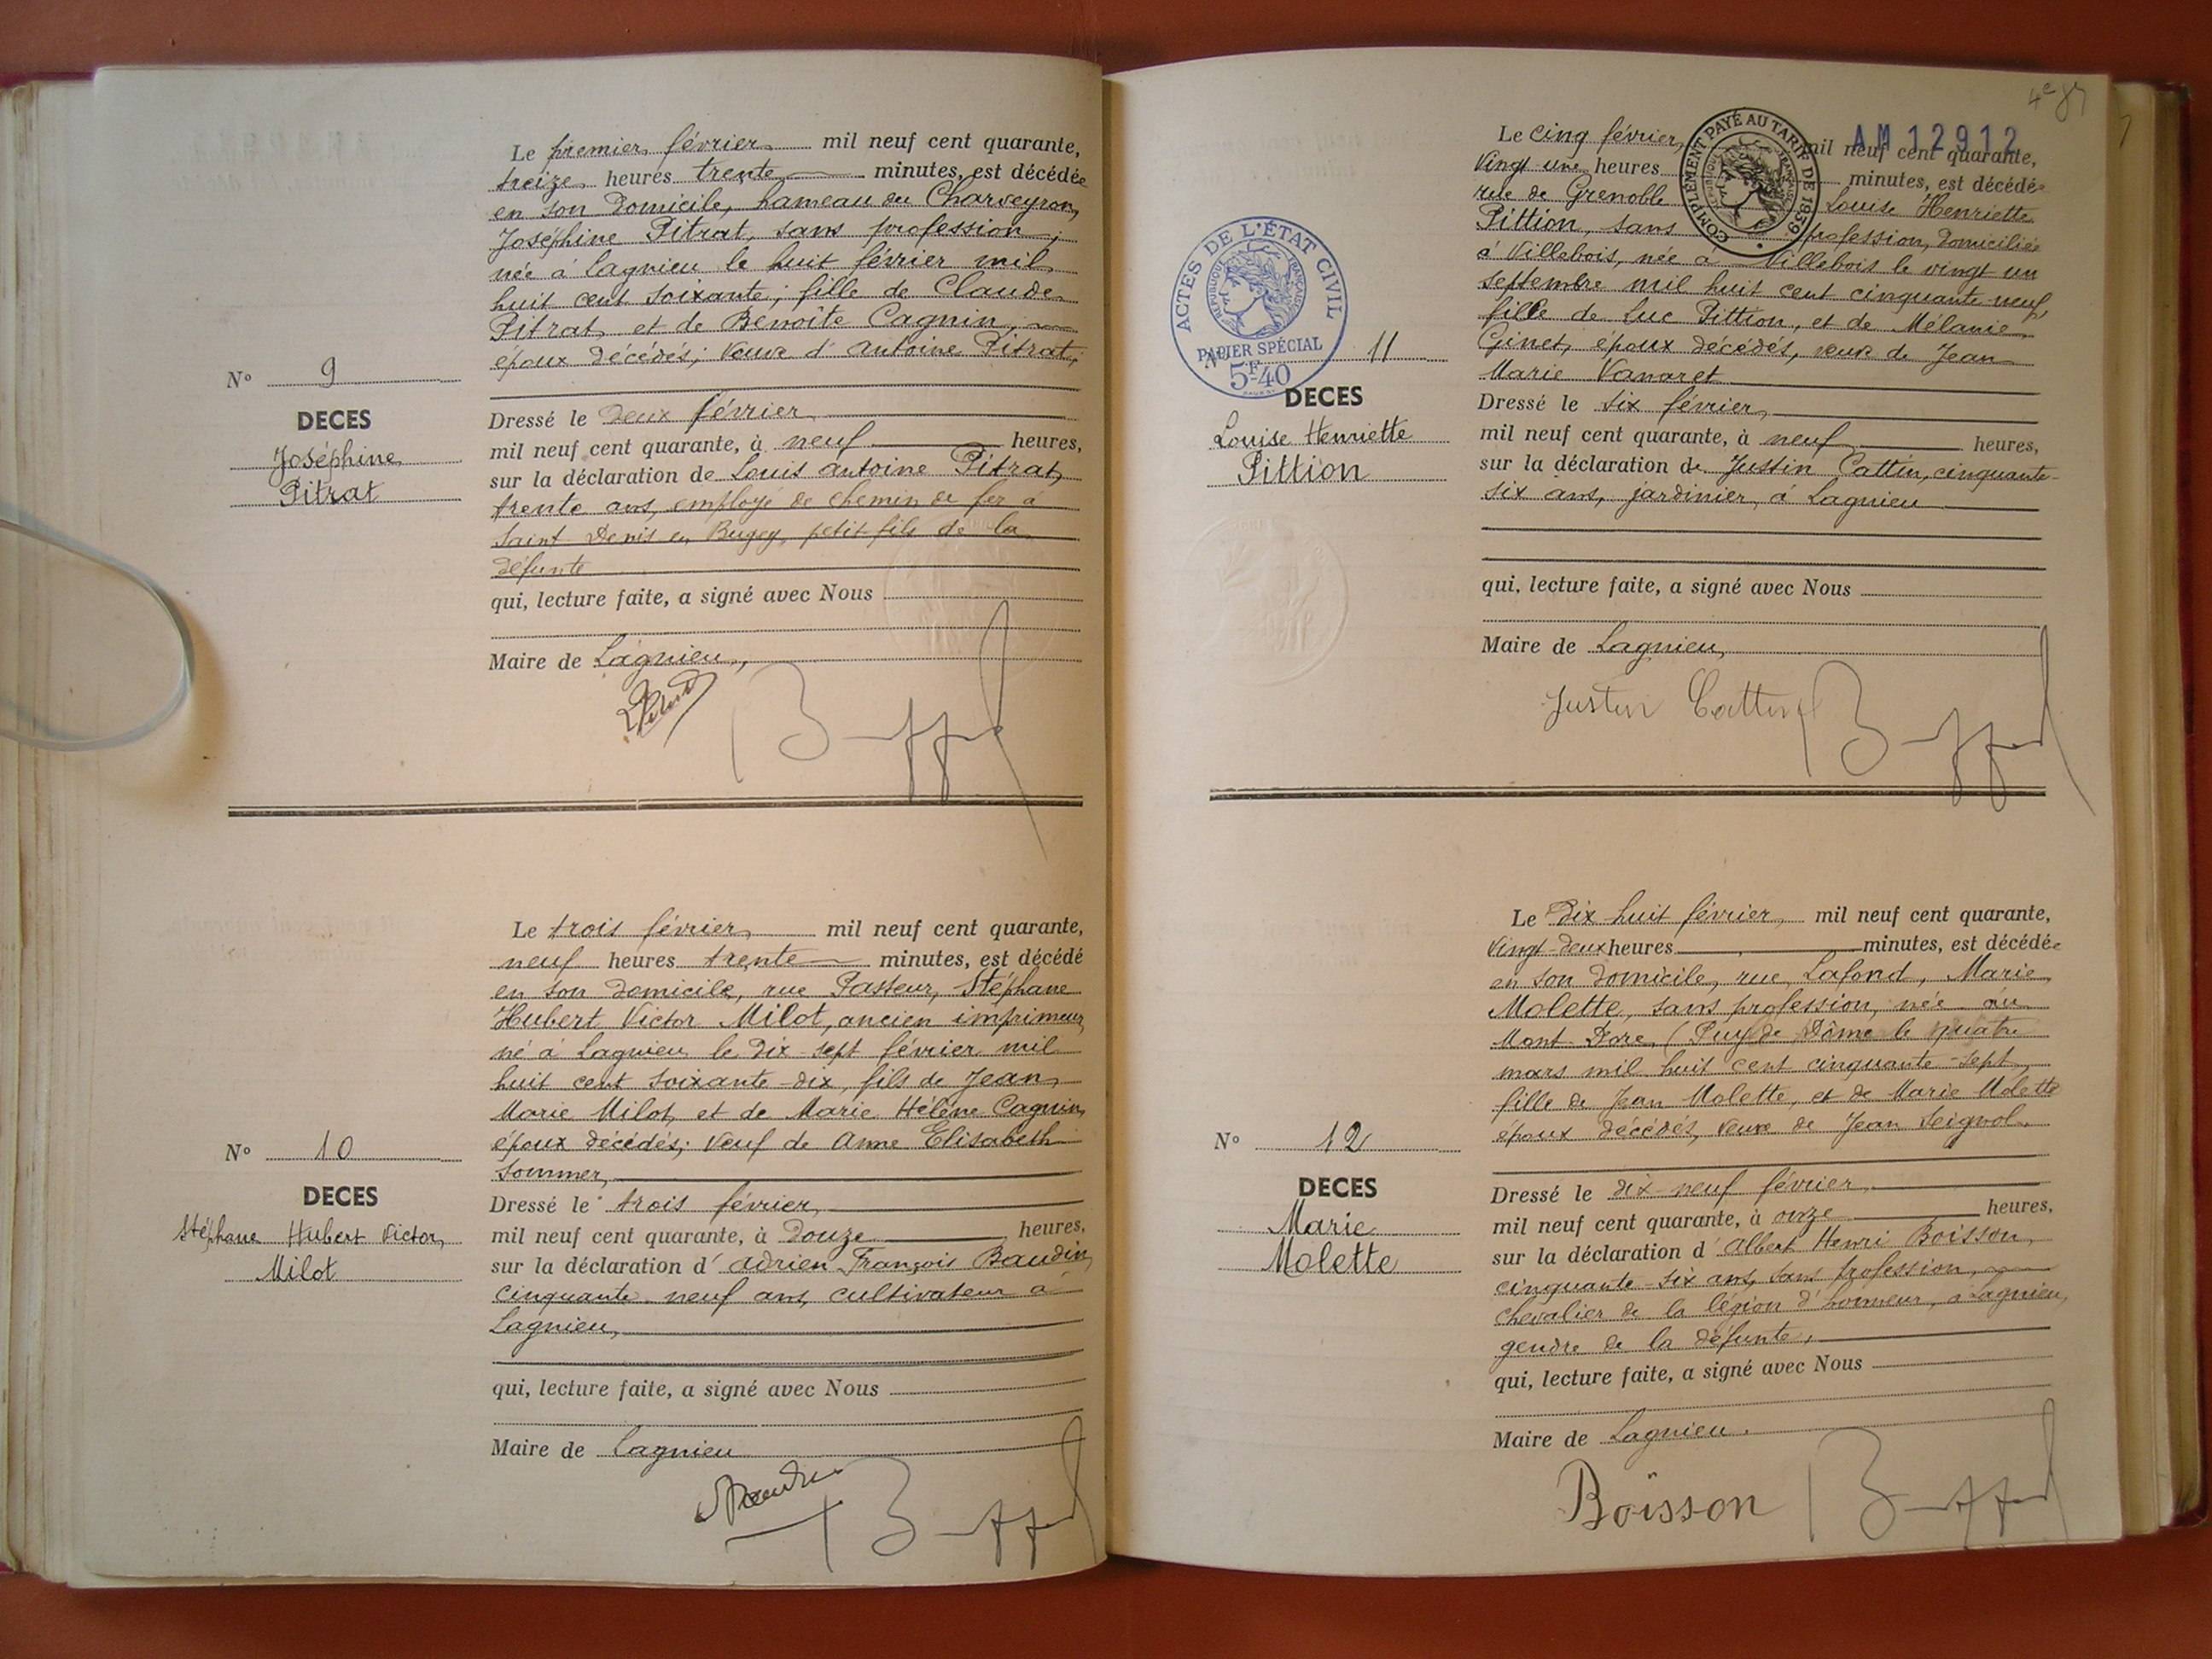 Le premier février mil neuf cent quarante,
treize heures trente minutes, est décédée
en son domicile, hameau du Charveyron,
Joséphine Pitrat, sans profession,
née à Lagnieu le huit février mil
huit cent soixante; fille de Claude
Pitrat et de Benoîte Cagnin,
époux décédés; veuve d'Antoine Pitrat;
N° 9
DECES
Joséphine
Pitrat
Dressé le deux février
mil neuf cent quarante, à neuf heures,
sur la déclaration de Louis Antoine Pitrat,
trente ans, employé de chemin de fer à
Saint Denis en Bugey, petit-fils de la
défunte
qui, lecture faite, a signé avec Nous
Maire de Lagnieu,
Le trois février mil neuf cent quarante,
neuf heures trente minutes, est décédé
en son domicile, rue Pasteur, Stéphane
Hubert Victor Milot, ancien imprimeur,
né à Lagnieu le dix-sept février mil
huit cent soixante-dix, fils de Jean
Marie Milot, et de Marie Hélène Cagnin,
époux décédés; veuf de Anne Elisabeth
Sommer,
N° 10
DECES
Stéphane Hubert Victor,
Milot
Dressé le trois février,
mil neuf cent quarante, à douze heures,
sur la déclaration d'Adrien François Baudin,
cinquante-neuf ans, cultivateur à
Lagnieu,
qui, lecture faite, a signé avec Nous
Maire de Lagnieu
4e
AM 12912
COMPLÉMENT PAYÉ AU TARIF DE 1939
Le cinq février, mil neuf cent quarante,
vingt-une heures minutes, est décédée
rue de Grenoble Louise Henriette
Pittion, sans profession, domiciliée
à Villebois, née à Villebois le vingt un
septembre mil huit cent cinquante neuf,
fille de Luc Pittion, et de Mélanie
Ginet, époux décédés, veuve de Jean
Marie Vanaret
ACTES DE L'ÉTAT CIVIL
RÉPUBLIQUE FRANÇAISE
PAPIER SPÉCIAL
5F40
N° 11
DECES
Louise Henriette
Pittion
Dressé le six février,
mil neuf cent quarante, à neuf heures,
sur la déclaration de Justin Cattin, cinquante-
six ans, jardinier, à Lagnieu
qui, lecture faite, a signé avec Nous
Maire de Lagnieu,
Justin Cattin
Le dix huit février, mil neuf cent quarante,
vingt-deux heures minutes, est décédée
en son domicile, rue Lafond, Marie
Molette, sans profession, née au
Mont-Dore, (Puy de Dôme le quatre
mars mil huit cent cinquante-sept,
fille de Jean Molette, et de Marie Molette
époux décédés, veuve de Jean Seignol.
N° 12
DECES
Marie
Molette
Dressé le dix-neuf février
mil neuf cent quarante, à onze heures,
sur la déclaration d'Albert Henri Boisson,
cinquante-six ans, sans profession,
chevalier de la légion d'honneur, à Lagnieu,
gendre de la défunte,
qui, lecture faite, a signé avec Nous
Maire de Lagnieu.
Boisson